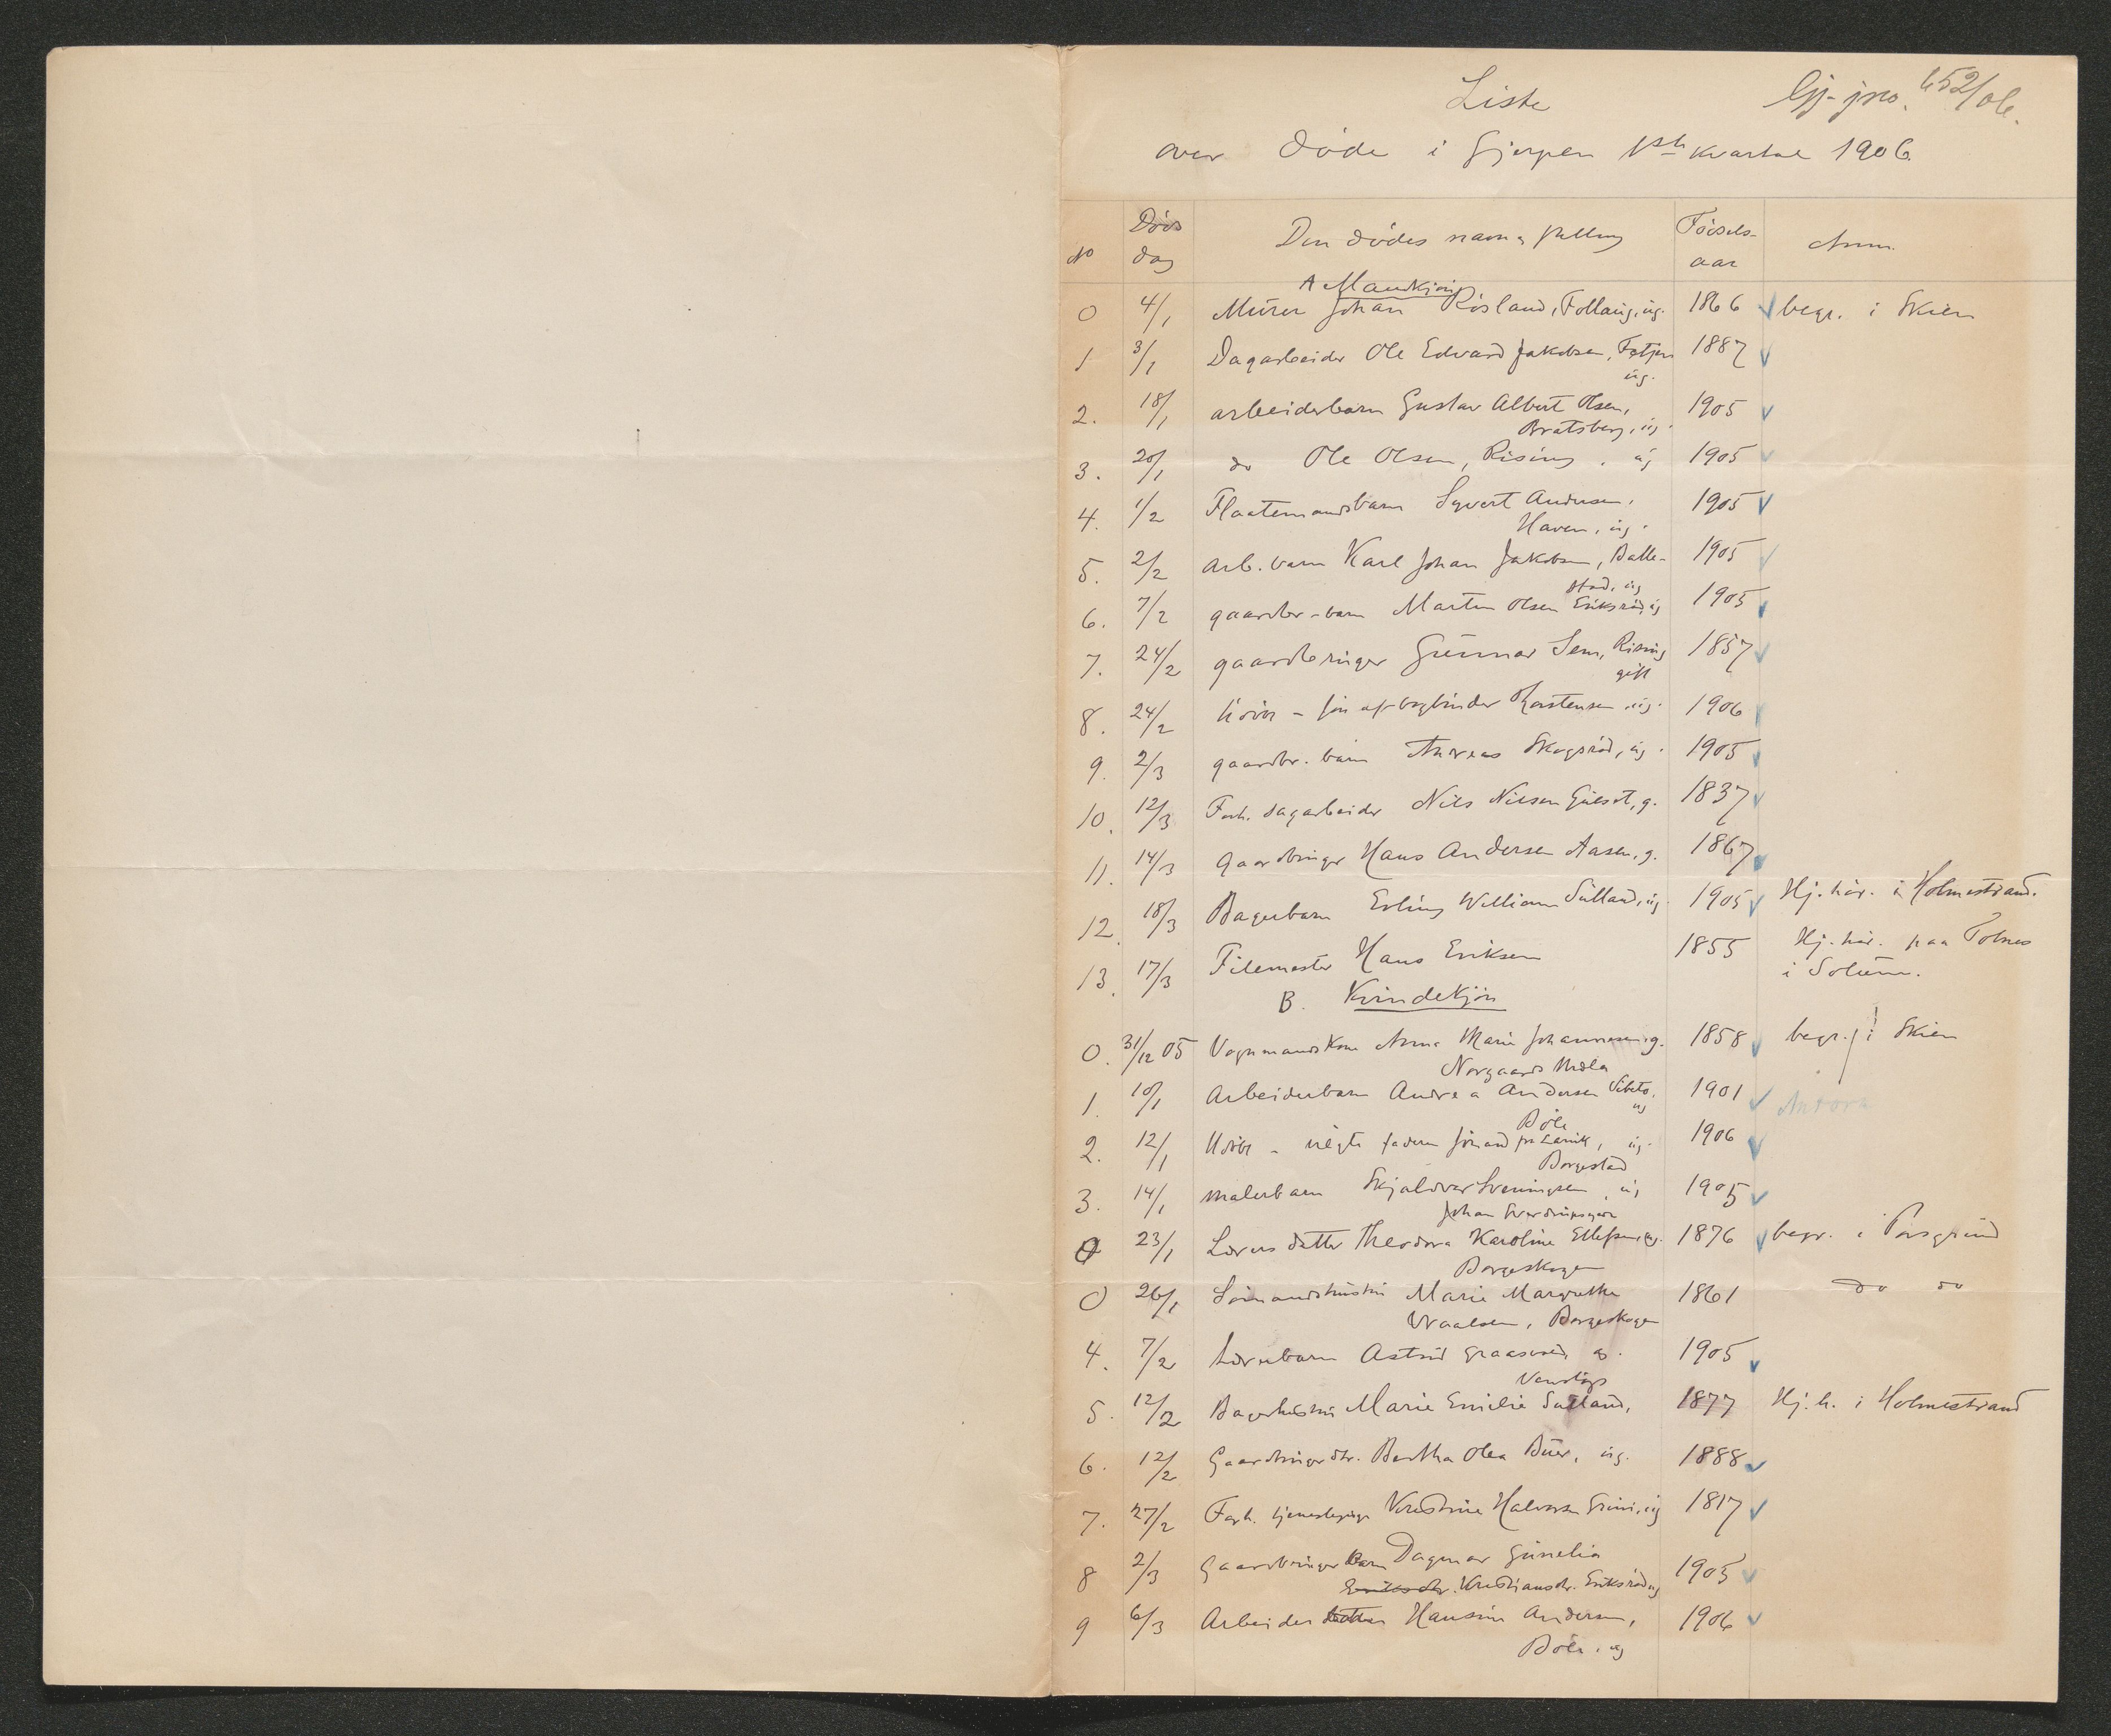 Liste
Gj-jno. 652/06.
over døde i Gjerpen 1ste kvartal 1906.
No Døds dag Den dødes navn & stilling Fødsels-aar Anm.
A Mandkjøn
0 4/1 Murer Johan Risland, Follaug, ug. 1866 begr. i Skien
1 3/1 Dagarbeider Ole Edvard Jakobsen, 1887
ug.
2. 18/1 arbeiderbarn Gustav Albert Olsen, 1905
Bratsberg, ug.
3. 20/1 do Ole Olsen, Rising, ug 1905
4. 1/2 Flaatemandsbarn Syvert Andersen, 1905
Haven, ug.
5. 2/2 arb. barn Karl Johan Jakobsen, Balle- 1905
stad, ug
6. 7/2 gaardbr-barn Martin Olsen Eriksrød, ug 1905
7. 24/2 gaardbruger Gunnar Sem, Rising 1857
gift
8. 24/2 Udøbt - søn af bogbinder Thorstensen ug. 1906
9. 2/3 gaardbr. barn Andreas Skogsrød, ug. 1905
10. 12/3 Forh. dagarbeider Nils Nilsen Gulset, g. 1837
11. 14/3 Gaardbruger Hans Andersen Aasen, g. 1867
12. 18/3 Bagerbarn Erling William Sulland, ug. 1905 Hj.hør. i Holmestrand.
13. 17/3 Filemester Hans Eriksen 1855 Hj.hør. paa Tolnes
i Solum.
B. Kvindekjøn
0. 31/12 05 Vognmandskone Anna Marie Johannesen, g. 1858 begr. i Skien
Norgaards Mølla
1. 10/1 Arbeiderbarn Andrea Andersen 1901 Antora
ug
Bøle
2. 12/1 Udøbt - uægte faderen sømand fra Larvik, ug. 1906
Borgestad
3. 14/1 Malerbarn Skjoldvor Sveningsen, ug 1905
Johan Sverdrupsgade
0 23/1 Lærers datter Theodora Karoline Ellefsen, ug. 1876 begr. i Porsgrund
Borgeskogen
0 26/1 Sømandshustru Marie Margrethe 1861 do do
Wraalsen, Borgeskogen
4. 7/2 Lærerbarn Astrid Graasrød, ug. 1905
Venstøp
5. 12/2 Bagerhustru Marie Emilie Sulland, 1877 Hj.h. i Holmestrand
6. 12/2 Gaardbrugerdtr. Bertha Olea Buer, ug. 1888
7. 27/2 Forh. tjenestepige Kirstine Halvorsen Grini, ug 1817
8 2/3 Gaardbruger Barn Dagmar Gunelia 1905
Eriksdtr. Kristiansdr. Eriksrød ug
9 6/3 Arbeider datter Hansine Andersen, 1906
Bøle, ug